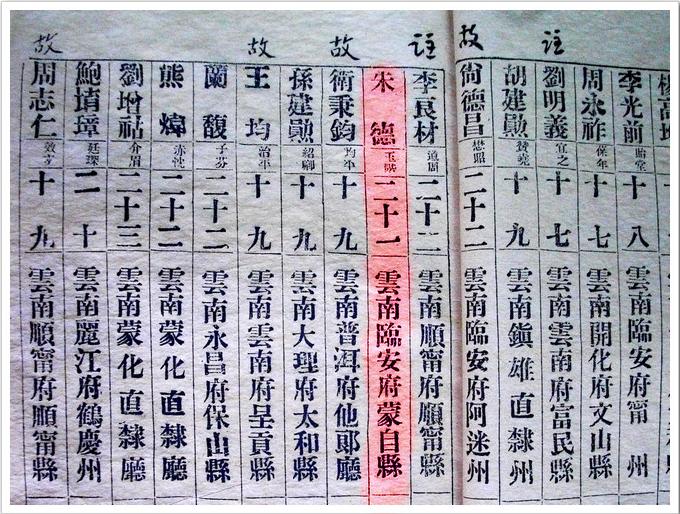 楊
李光前 貽堂 十八 雲南臨安府甯州
周永祚 保年 十七 雲南開化府文山縣
註 劉明義 宜之 十七 雲南雲南府富民縣
胡建勳 贊堯 十九 雲南鎭雄直隸州
故 尙德昌 懋照 二十二 雲南臨安府阿迷州
註 李良材 二十二 雲南順甯府順甯縣
朱德 玉階 二十一 雲南臨安府蒙自縣
故 衛秉鈞 均平 十九 雲南普洱府他郞廳
孫建勳 紹卿 十九 雲南大理府太和縣
故 王均 治平 十九 雲南雲南府呈貢縣
蘭馥 子芬 二十二 雲南永昌府保山縣
熊煒 二十二 雲南蒙化直隸廳
劉增祜 介眉 二十三 雲南蒙化直隸廳
鮑堉璋 廷琛 二十 雲南麗江府鶴慶州
故 周志仁 十九 雲南順甯府順甯縣